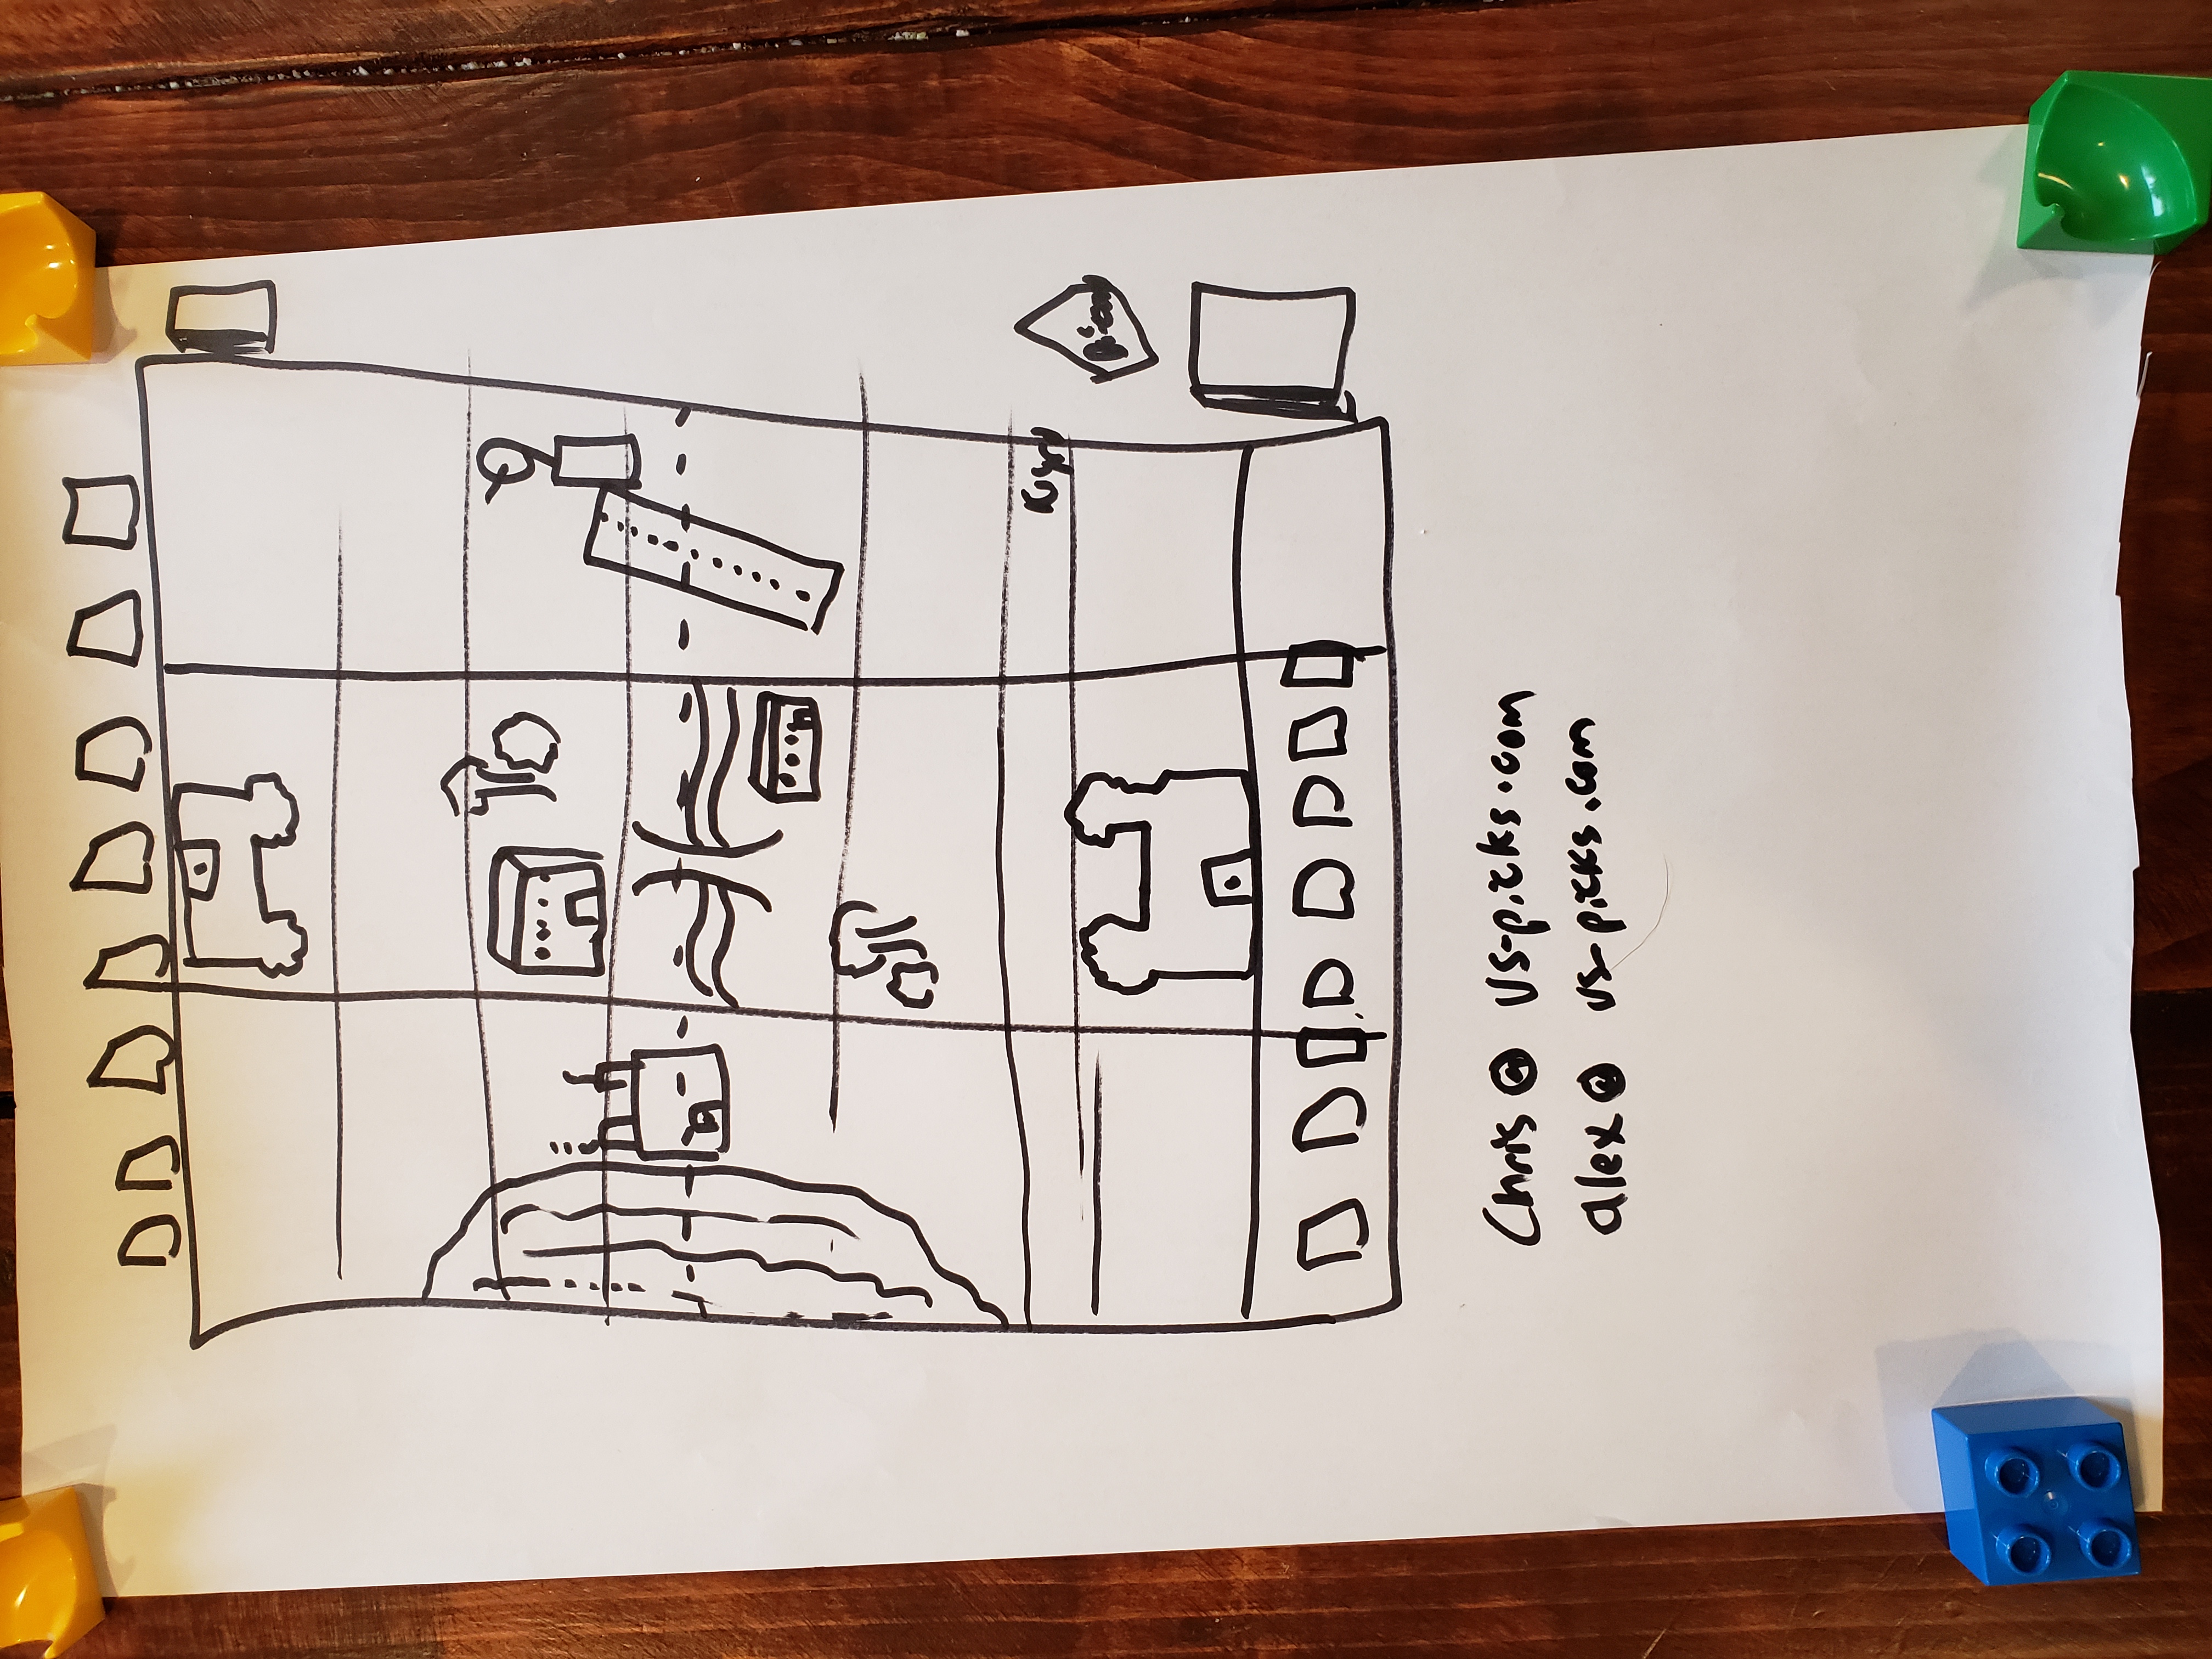 Chris @ vs-picks.com
alex @ vs-picks.com